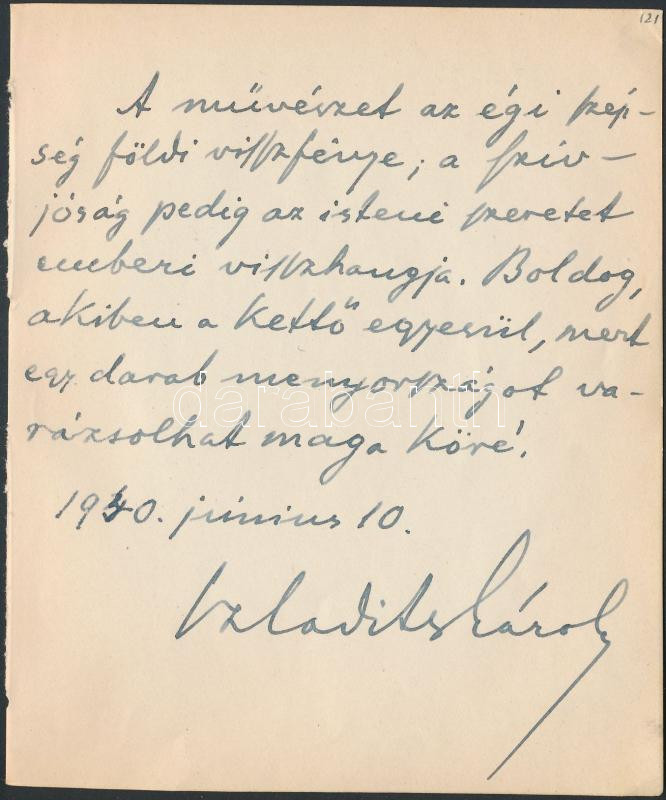 121
A művészet az égi szép-
ség földi visszfénye; a szív-
jóság pedig az isteni szeretet
emberi visszhangja. Boldog,
akiben a kettő egyesül, mert
egy darab menyországot va-
rázsolhat maga köré.
darabanth
1940. június 10.
Szladits Károly